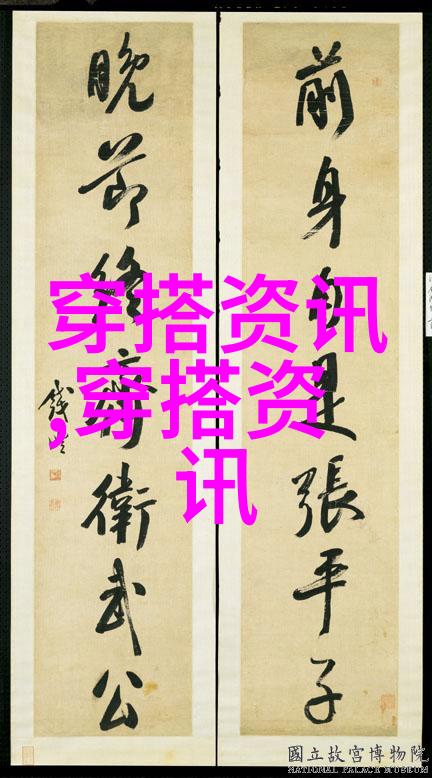 前身自是張平子
晚節終齊衛武公
穿搭资讯
,穿搭资
讯
國立故宮博物院
NATIONAL PALACE MUSEUM